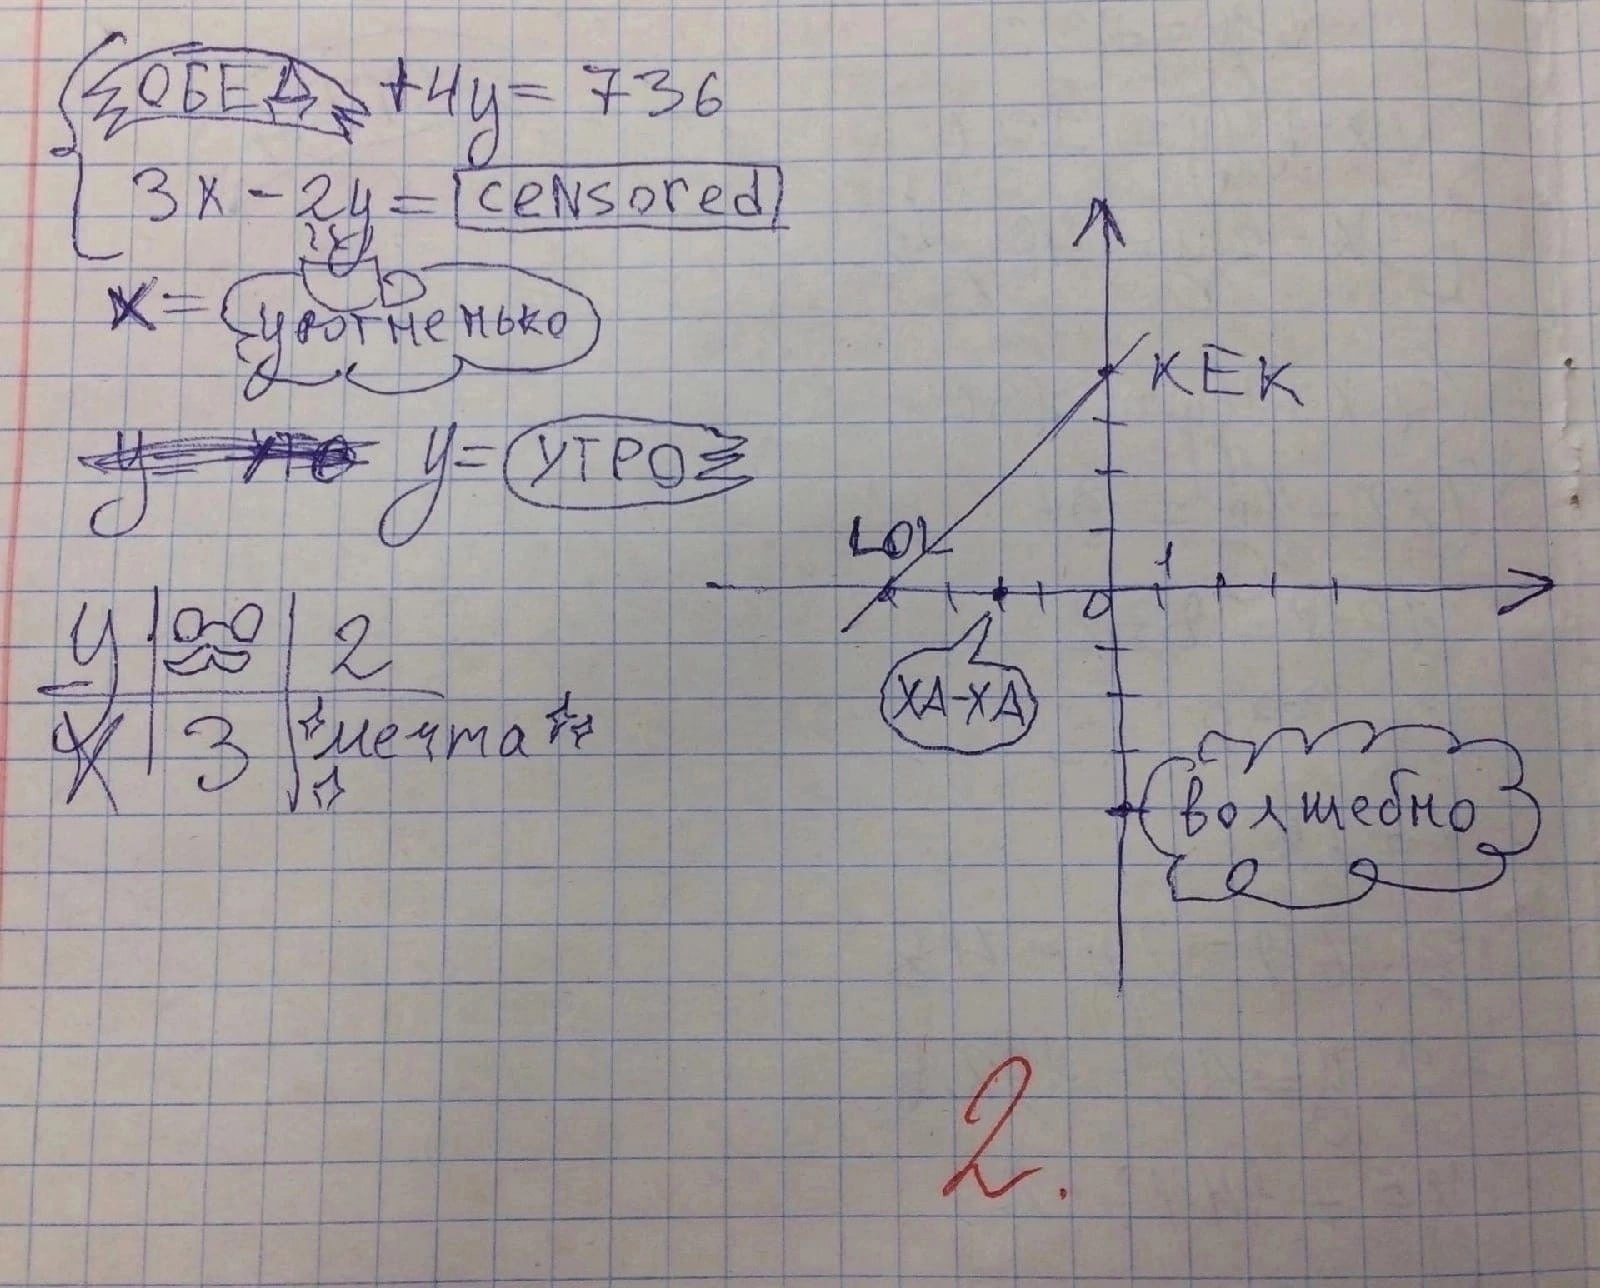 ОБЕД +4y= 736
3x-2y= censored
x= уютненько
y= УТРО
y 2
x 3 мечта
КЕК
LOL
1
0
ХА-ХА
волшебно
2.